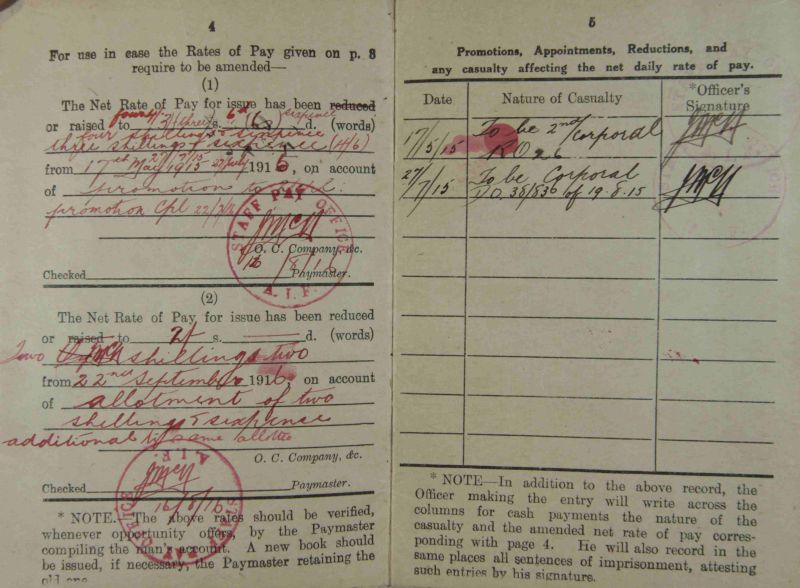 4
For use in case the Rates of Pay given on p. 3
require to be amended—
(1)
The Net Rate of Pay for issue has been reduced
or raised to s. 6d d. (words)
four shillings & sixpence
three shillings & sixpence (4/6)
from 17th May 1915 27 July 1916, on account
of promotion to
promotion Cpl
STAFF PAY OFFICE
A.I.F.
O. C. Company, &c.
Checked Paymaster.
(2)
The Net Rate of Pay for issue has been reduced
or raised to 2/ s. d. (words)
Two shillings two
from 22nd September 1916, on account
of allotment of two
shillings & sixpence
additional to same allottee
O. C. Company, &c.
A.I.F.
Checked Paymaster.
16/8/16
* NOTE. The above rates should be verified,
whenever opportunity offers, by the Paymaster
compiling the man's account. A new book should
be issued, if necessary, the Paymaster retaining the
old one.
5
Promotions, Appointments, Reductions, and
any casualty affecting the net daily rate of pay.
Date Nature of Casualty *Officer's Signature
17/5/15 To be 2nd/Corporal
RO 26
27/7/15 To be Corporal
of 19.8.15
* NOTE—In addition to the above record, the
Officer making the entry will write across the
columns for cash payments the nature of the
casualty and the amended net rate of pay corres-
ponding with page 4. He will also record in the
same places all sentences of imprisonment, attesting
such entries by his signature.